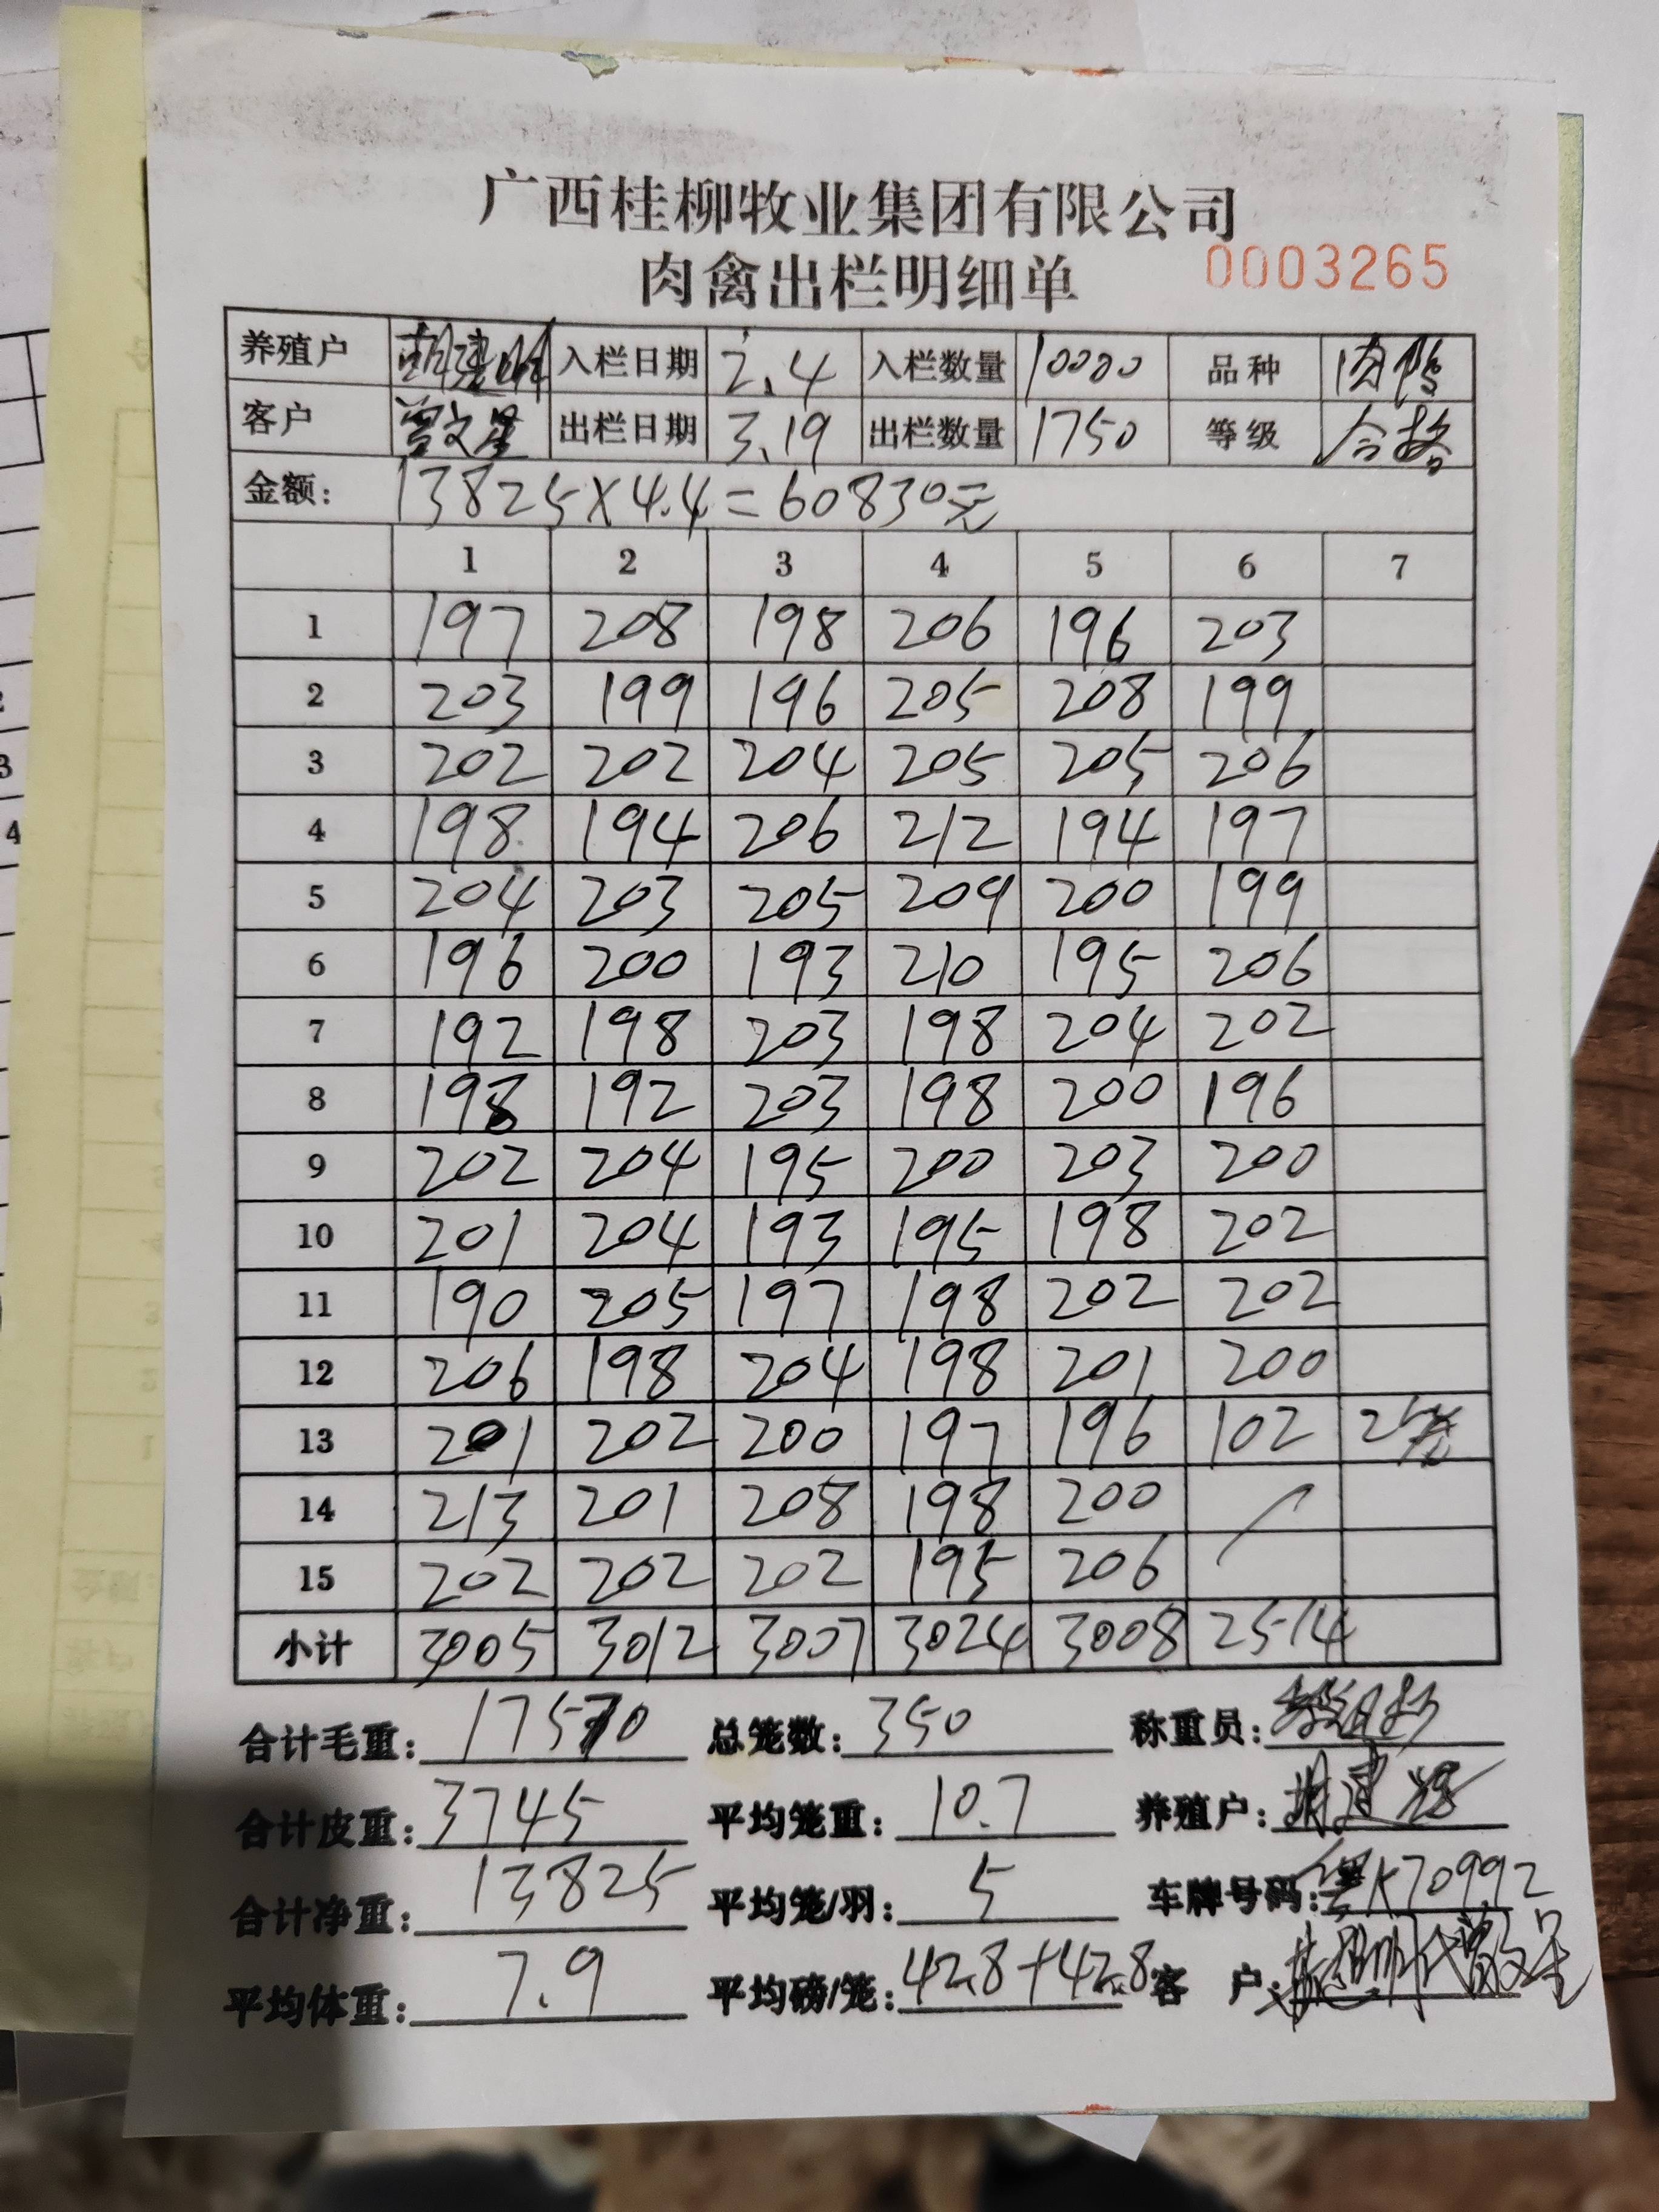 广西桂柳牧业集团有限公司
肉禽出栏明细单 0003265
养殖户 入栏日期 2.4 入栏数量 10000 品种 肉鸭
客户 曾文星 出栏日期 3.19 出栏数量 1750 等级 合格
金额: 13825×4.4=60830元
1 2 3 4 5 6 7
1 197 208 198 206 196 203
2 203 199 196 205 208 199
3 202 202 204 205 205 206
4 198 194 206 212 194 197
5 204 203 205 209 200 199
6 196 200 193 210 195 206
7 192 198 203 198 204 202
8 198 192 203 198 200 196
9 202 204 195 200 203 200
10 201 204 193 195 198 202
11 190 205 197 198 202 202
12 206 198 204 198 201 200
13 201 202 200 197 196 102
14 213 201 208 198 200
15 202 202 202 195 206
小计 3005 3012 3007 3024 3008 2514
合计毛重: 17570 总笼数: 350 称重员:
合计皮重: 3745 平均笼重: 10.7 养殖户:
合计净重: 13825 平均笼/羽: 5 车牌号码: K70992
平均体重: 7.9 平均磅/笼: 42.8+42.8 客 户: